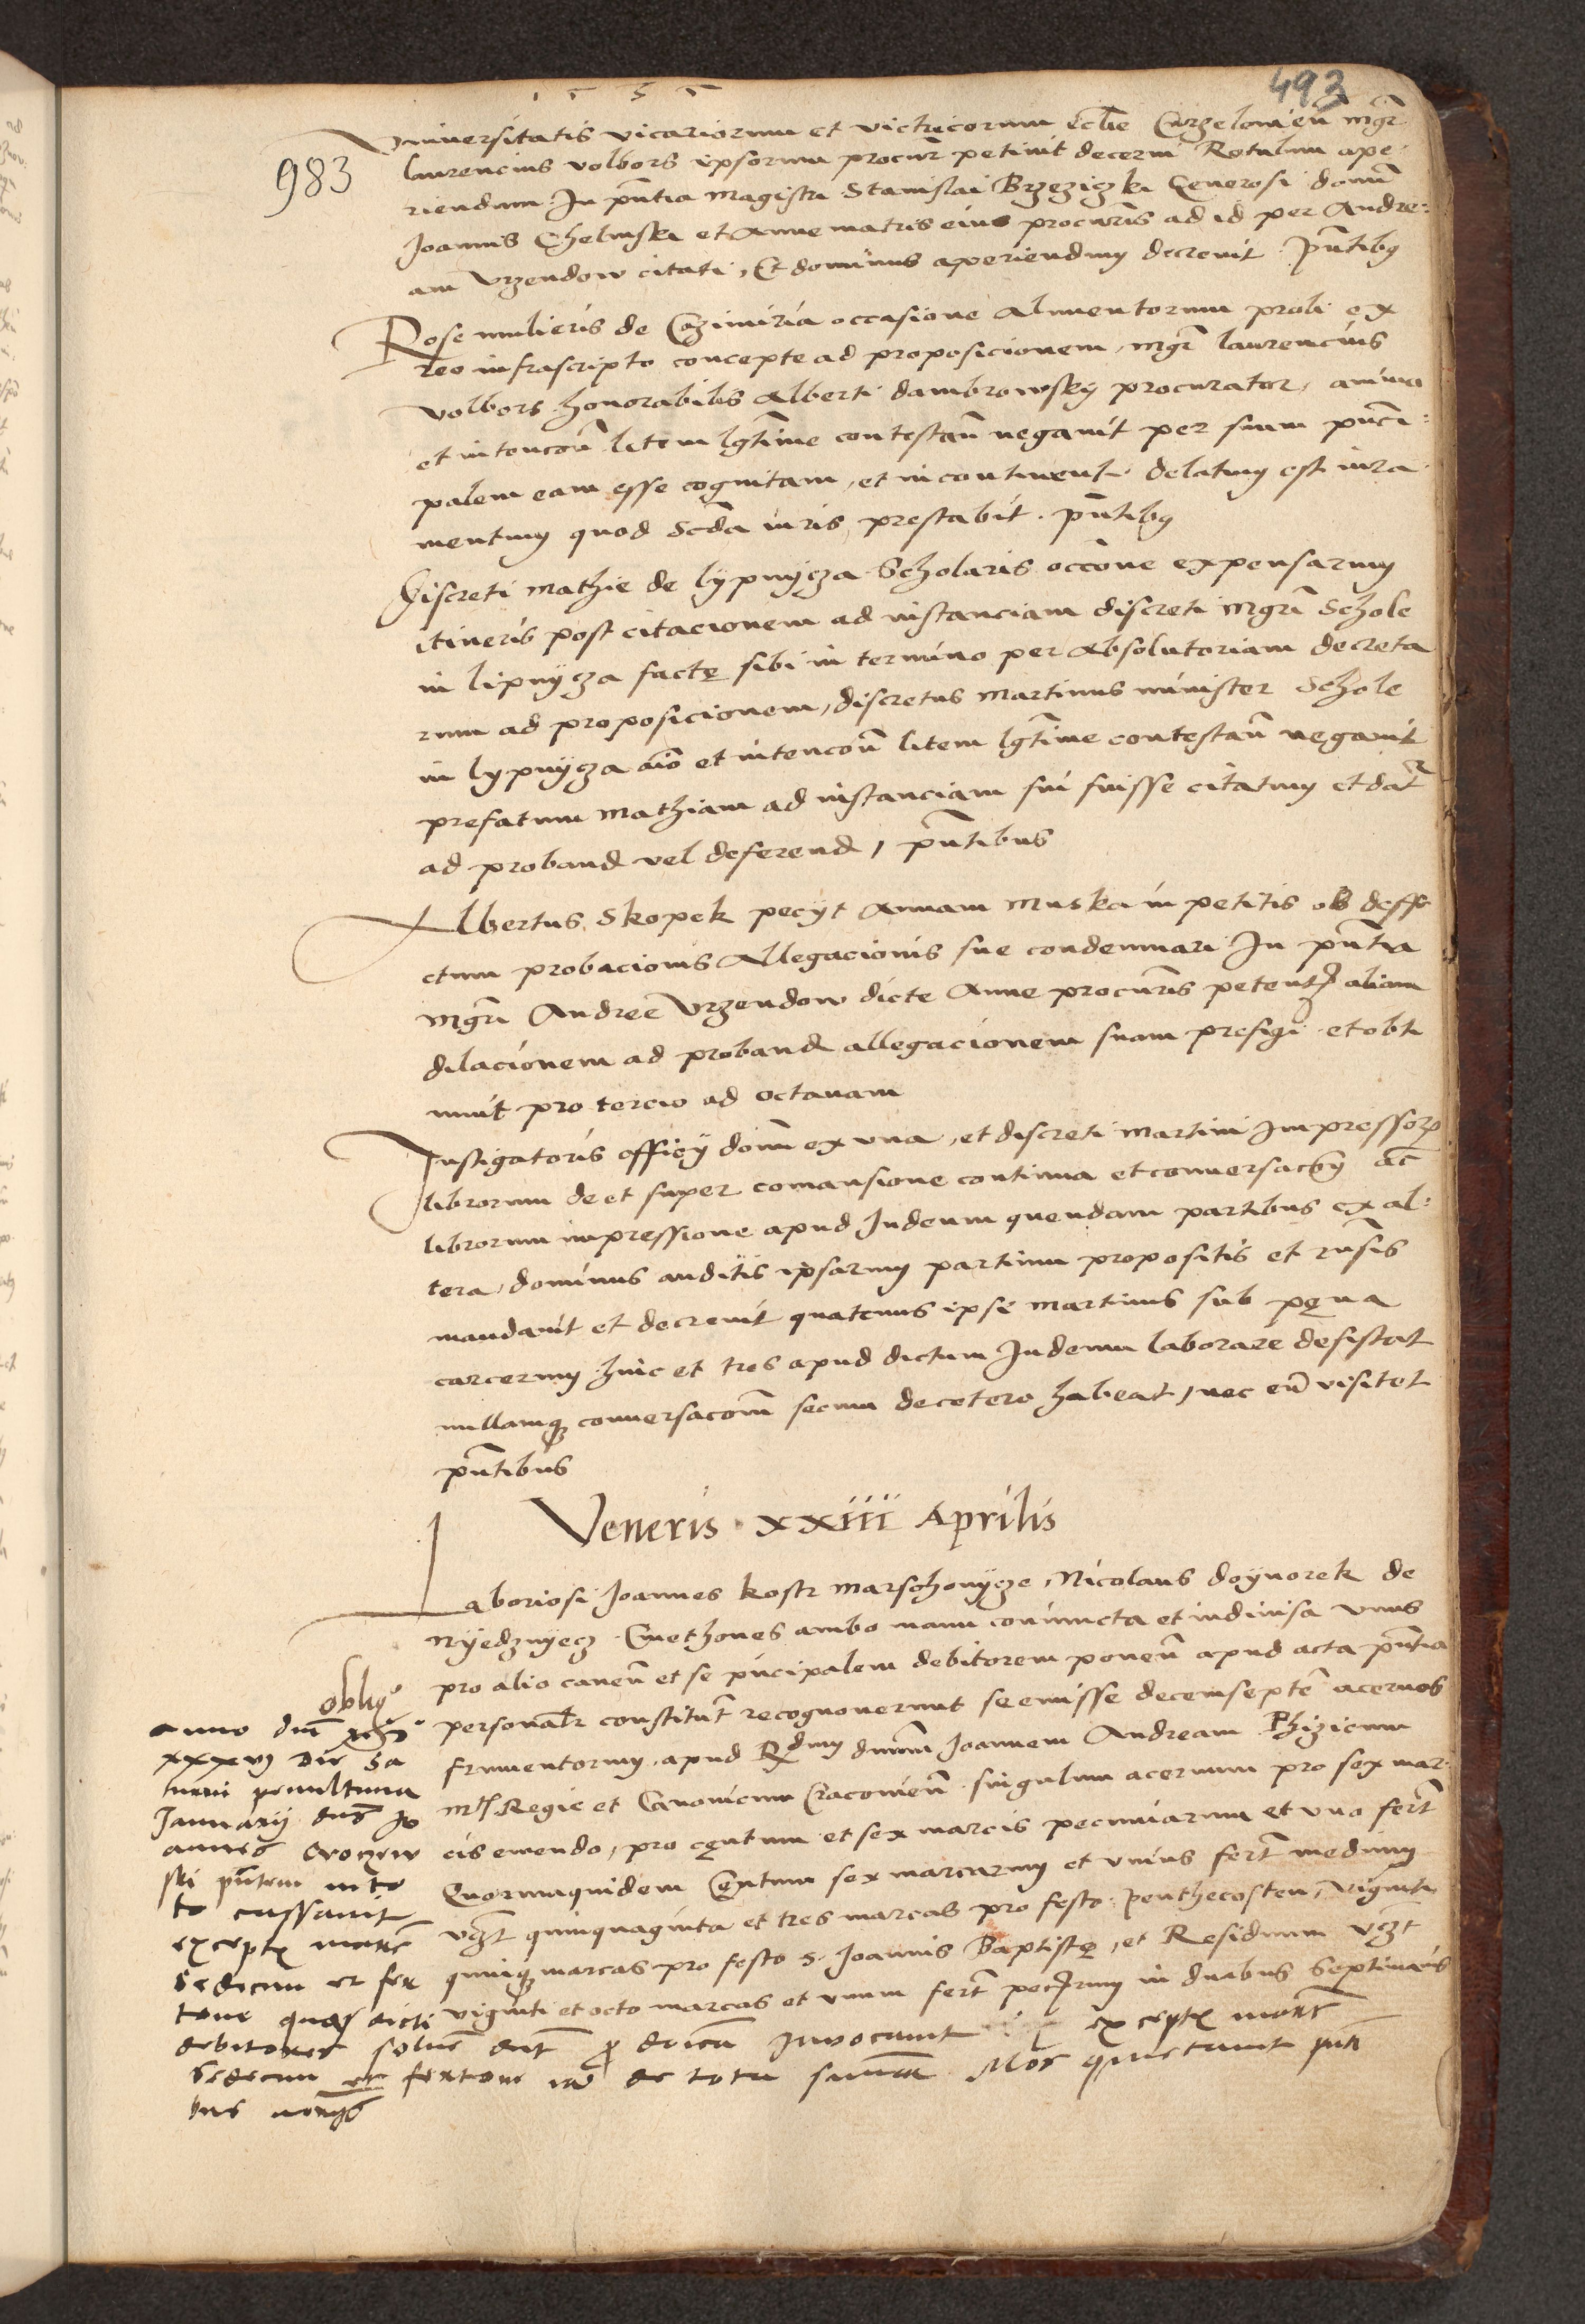 493
1 5 3 5
Universitatis vicariorum et victricorum eclie Curzelouien mgr
983
laurencius volbors ipsorum procur petiuit decerni Rotulum ape
riendum In pntia magistri Stanislai Brzeziczki Generosi domi
Joannis Chelmski et Anne matris eius procuris ad id per Andre
am Vrzendow citati, Et dominus aperiendum decreuit Pntibus
Rose mulieris de Cazimiria occasione alimentorum proli ex
reo infrascripto concepte ad proposicionem, mgr laurencius
volbors honorabilis Alberti dambrowsky procurator, animo
et intencon litem lgtime contestan negauit per suum pnci
palem eam esse cognitam, et incontinenti delatum est iura
mentum quod Scda iuris prestabit. pntibus
Discreti Mathie de lypnycza Scholaris occone expensarum
itineris post citacionem ad instanciam discreti mgri Schole
in lipnycza facte sibi in termino per absolutoriam decreta
rum ad proposicionem, discretus Martinus minister Schole
in lypnycza aio et intencon litem lgtime contestan negauit
prefatum Mathiam ad instanciam sui fuisse citatum et datr
ad proband vel deferend, pntibus
Albertus Skopek pecyt Annam Muska in petitis ob deffe
ctum probacionis allegacionis sue condemnari In pntia
mgri Andree Vrzendow dicte Anne procuris petentis aliam
dilacionem ad proband allegacionem suam prefigi et obti
nuit pro tercio ad octauam
Instigatoris officy domi ex vna, et discreti Martini impressoris
librorum de et super comansione continua et conuersacoe ac
librorum impressione apud Judeum quendam partibus ex al
tera, dominus auditis ipsarum partium propositis et rnsis
mandauit et decreuit quatenus ipse Martinus sub pena
carcerum hinc et tres apud dictum Judeum laborare desistat
nullamque conuersacom secum decetero habeat, nec eum visitet
pntibus
Veneris xxiii Aprilis
Laboriosi Joannes kostr Marschowycze, Nicolaus doynorek de
Nyedzwyecz Cmethones ambo manu coniuncta et indiuisa vnus
pro alio cauen et se pncipalem debitorem ponen apud acta pntia
personalr constitut recognouerunt se emisse decemseptem aceruos
frumentorum, apud Rdum dnum Joannem Andream Phizicum
Mtis Regie et Canonicum Cracouien singulum aceruum pro sex mar
cis emendo, pro centum et sex marcis pecuniarum et vno fert
Quarumquidem Centum sex marcarum et vnius fert medium
vzt quinquaginta et tres marcas pro festo Penthecosten, viginti
quinque marcas pro festo S. Joannis Baptiste, et Residuum vzt
viginti et octo marcas et vnum fert pecuniarum in duabus Septimanis
oblig
anno dni
xxxvi Die Sa
penultima
January dns Jo
annes
pntem in to
to cassauit
exceptis marc
sedecim et fer
tone quas dicti
debitores
exceptis marc
sedecim et fertone de tota summa quietauit pnti
bus